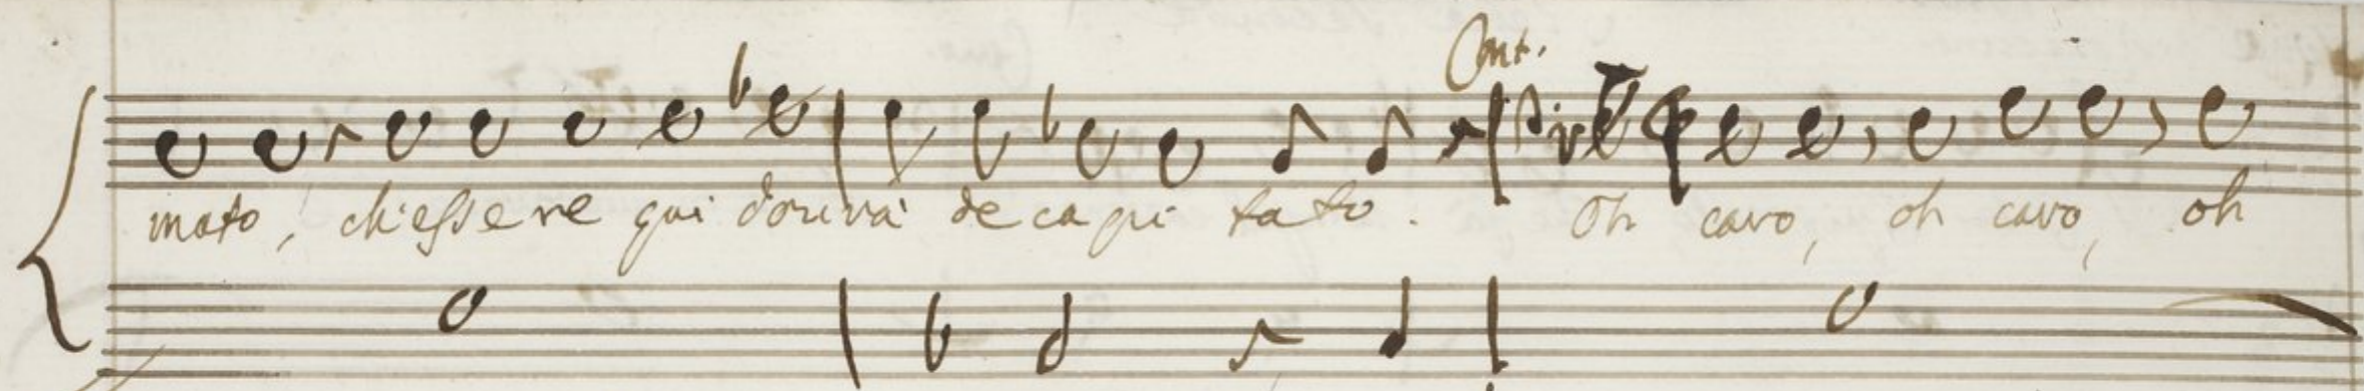 Cont.
mato, ch'essere qui dovrà decapitato. Oh caro, oh caro, oh